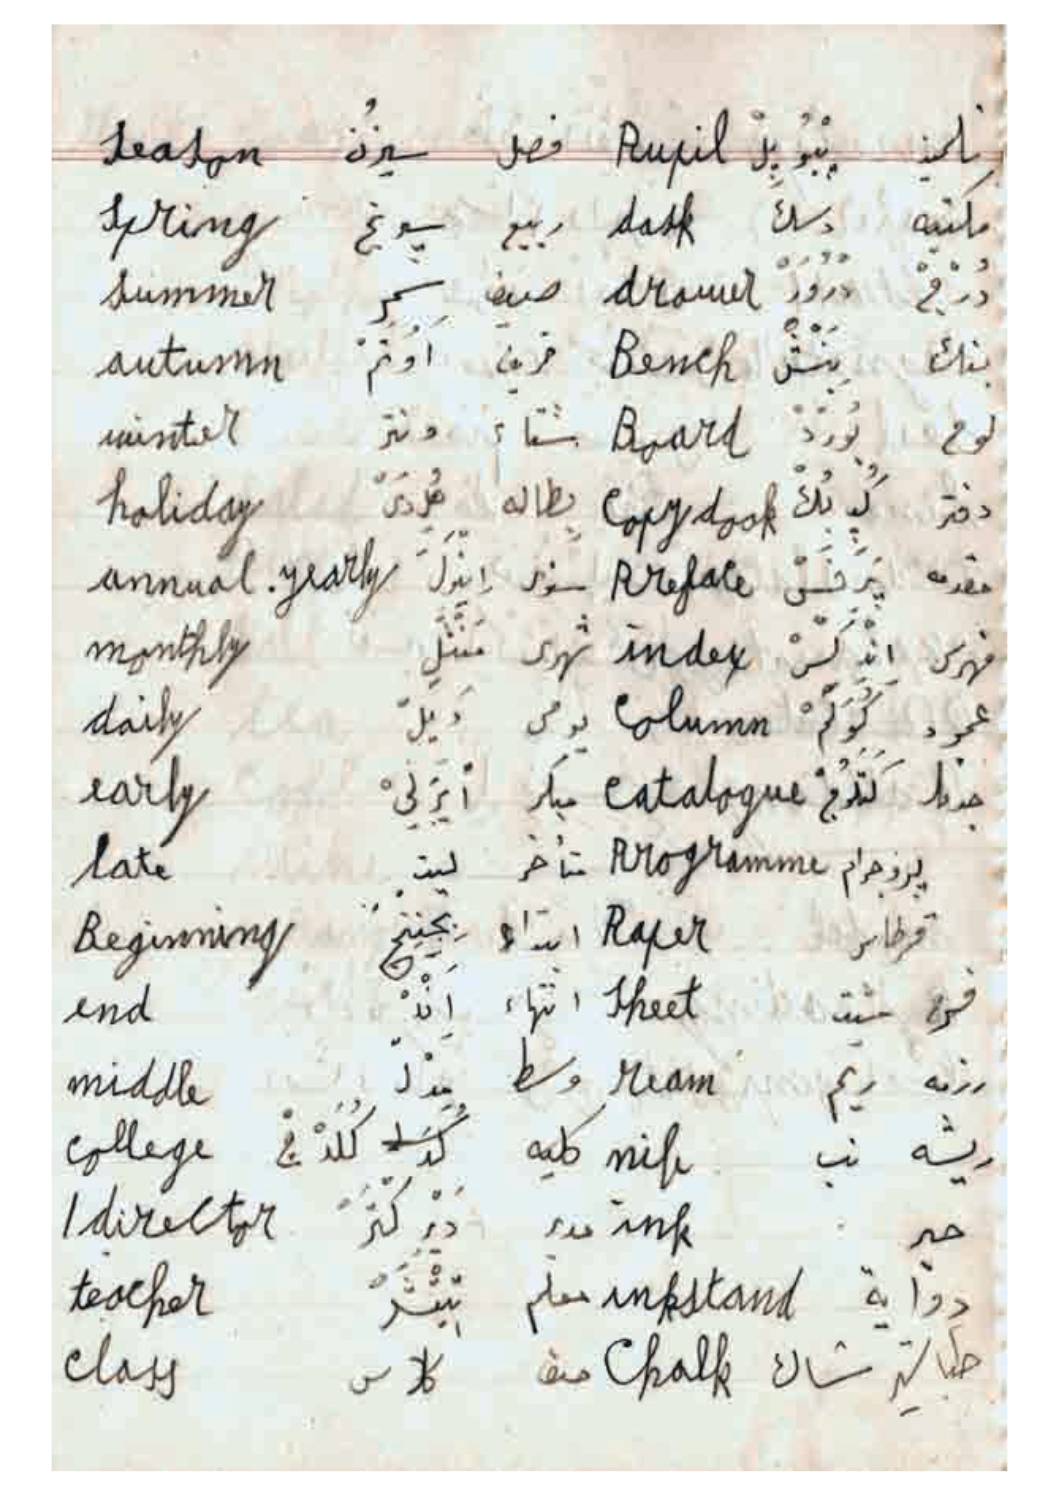 season سيزن فصل Pupil بيوبل تلميذ
spring سبرنج ربيع dask دسك مكتبه
summer سمر صيف drawer درور درج
autumn اوتم خريف Bench بنش بنك
winter ونتر شتاء Board بورد لوح
holiday هلدى بطاله Copy book كبي بك دفتر
annual . yearly سنوى Preface برفس مقدمه
monthly منثلى شهرى index اندكس فهرس
daily ديلى يومى Column كولم عمود
early ايرلى مبكر catalogue كتلوج
late ليت متأخر Programme پروجرام
Beginning بجننج ابتداء Paper قرطاس
end اند انتهاء sheet شيت فرخ
middle مدل وسط ream ريم رزمه
college كلدج كليه nib نب ريشه
director دركتر مدير ink حبر
teacher تيتشر معلم inkstand دواية
class كلاس صف Chalk شاك